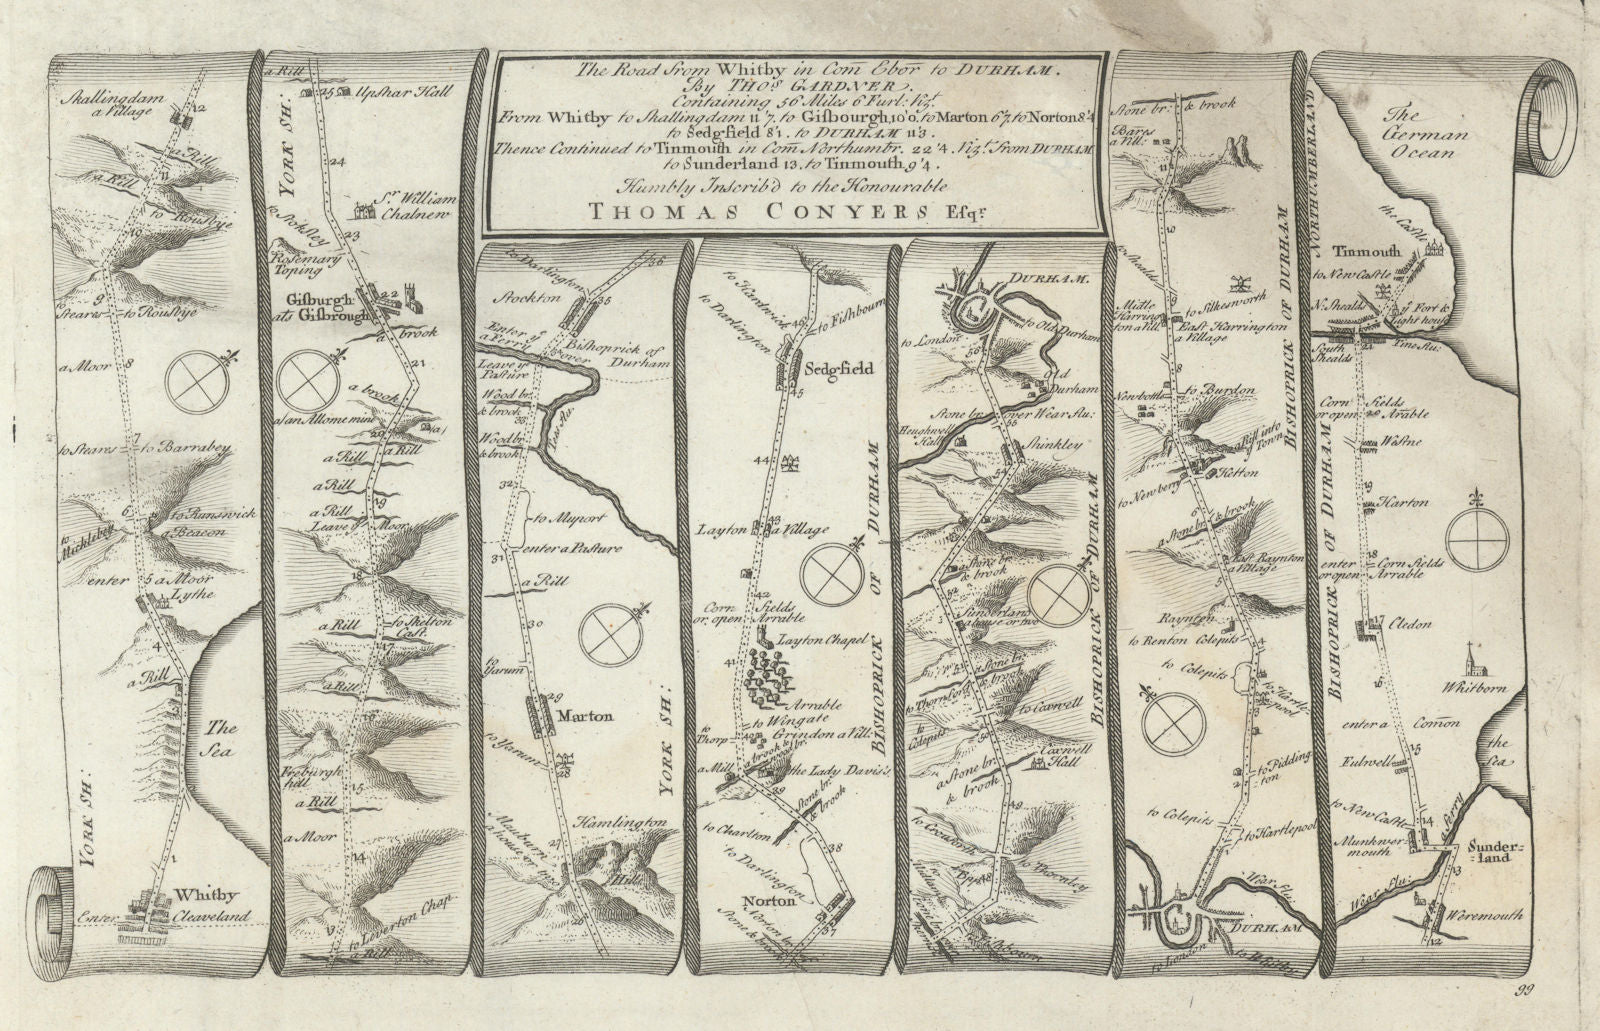 The Road from Whitby in Com̄ Ebor̄ to DURHAM.
By THOs. GARDNER.
Containing 56 Miles 6 Furl: Vizt.
From Whitby to Skallingdam 11'7, to Gisbourgh, 10'0, to Marton 6'7, to Norton 8'4
to Sedgfield 8'1. to DURHAM 11'3.
Thence Continued to Tinmouth in Com̄ Northumbr. 22'4. Vizt. from DURHAM
to Sunderland 13. to Tinmouth, 9'4.
Humbly Inscrib'd to the Honourable
THOMAS CONYERS Esqr.
Skallingdam
a Village
12
a Rill
11
a Rill
to Rousbye
10
9
Steares
to Rousbye
a Moor
8
7
to Steares
to Barrabey
6
to Runswick
a Beacon
to Micklebey
enter
5
a Moor
Lythe
4
a Rill
The
Sea
YORK SH:
1
Whitby
Enter
Cleaveland
a Rill
25
Upshar Hall
YORK SH:
24
Sr. William
Chalnew
to Stoksley
23
Rosemary
Toping
Gisburgh
als Gisbrough
22
a brook
21
a brook
a/an Allome mine
20
a Rill
a Rill
a Rill
19
a Rill
Leave ye Moor
18
a Rill
to Skelton
Cast.
17
a Rill
16
Freeburgh
hill
15
a Rill
a Moor
14
13
to Leverton Chap
a Rill
to Darlington
36
Stockton
35
Enter ye
a Ferry
over
Bishoprick of
Durham
Leave ye
Pasture
Wood br.
& brook
33
Tees flu:
Wood br.
& brook
32
to Myport
31
enter a Pasture
a Rill
30
to
Yarum
29
Marton
to Yarum
28
YORK SH:
27
Hamlington
Hills
a house or two
26
to Hardwick
to Darlington
46
to Fishbourn
Sedgfield
45
44
Layton
43
a Village
42
Corn fields
or open Arrable
Layton Chapel
41
Arrable
to Wingate
to
Thorp
40
Grindon a Vill:
a brook &
wood br.
a Mill
the Lady Davis's
39
Stone br.
& brook
to Charlton
38
to Darlington
Norton
37
Norton br.
Stone &
BISHOPRICK OF DURHAM
DURHAM.
to Old Durham
to London
56
Old
Durham
Stone br. over Wear flu:
55
Heughwell
Hall
Shinkley
54
a Stone br.
& brook
52
Sunderland
a house or two
51
a Stone br.
& brook
to Thornley
to Coxwell
to
Colepits
50
a Stone br.
& brook
Coxwell
Hall
49
to Thornley
48
BISHOPRICK OF DURHAM
Stone br: & brook
Barns
a Vill:
11
10
to Shealds
9
to Silkesworth
Midle
Harring
ton a Vill.
East Harrington
a Village
8
Newbottle
to Burdon
7
a Rill into
Town
Hetton
to Newberry
6
a Stone br. & brook
East Raynton
a Village
5
Raynten
4
to Renton Colepits
to Colepits
to Hartle-
pool
3
2
to Pidding
ton
to Colepits
to Hartlepool
Wear flu:
DURHAM
to London
to Whitby
BISHOPRICK OF DURHAM
NORTHUMBERLAND
The
German
Ocean
the Castle
Tinmouth
to New Castle
N. Shealds
ye Fort &
Light house
21
South
Shealds
Tine flu:
Corn fields
or open 20 Arable
Westne
19
Harton
18
enter Corn fields
or open Arrable
17
Cledon
16
Whitborn
enter a Com̄on
15
Fulwell
the
Sea
to New Castle
14
a Ferry
Munkwer-
mouth
Sunder-
land
13
Wear flu:
Weremouth
12
BISHOPRICK OF DURHAM
99